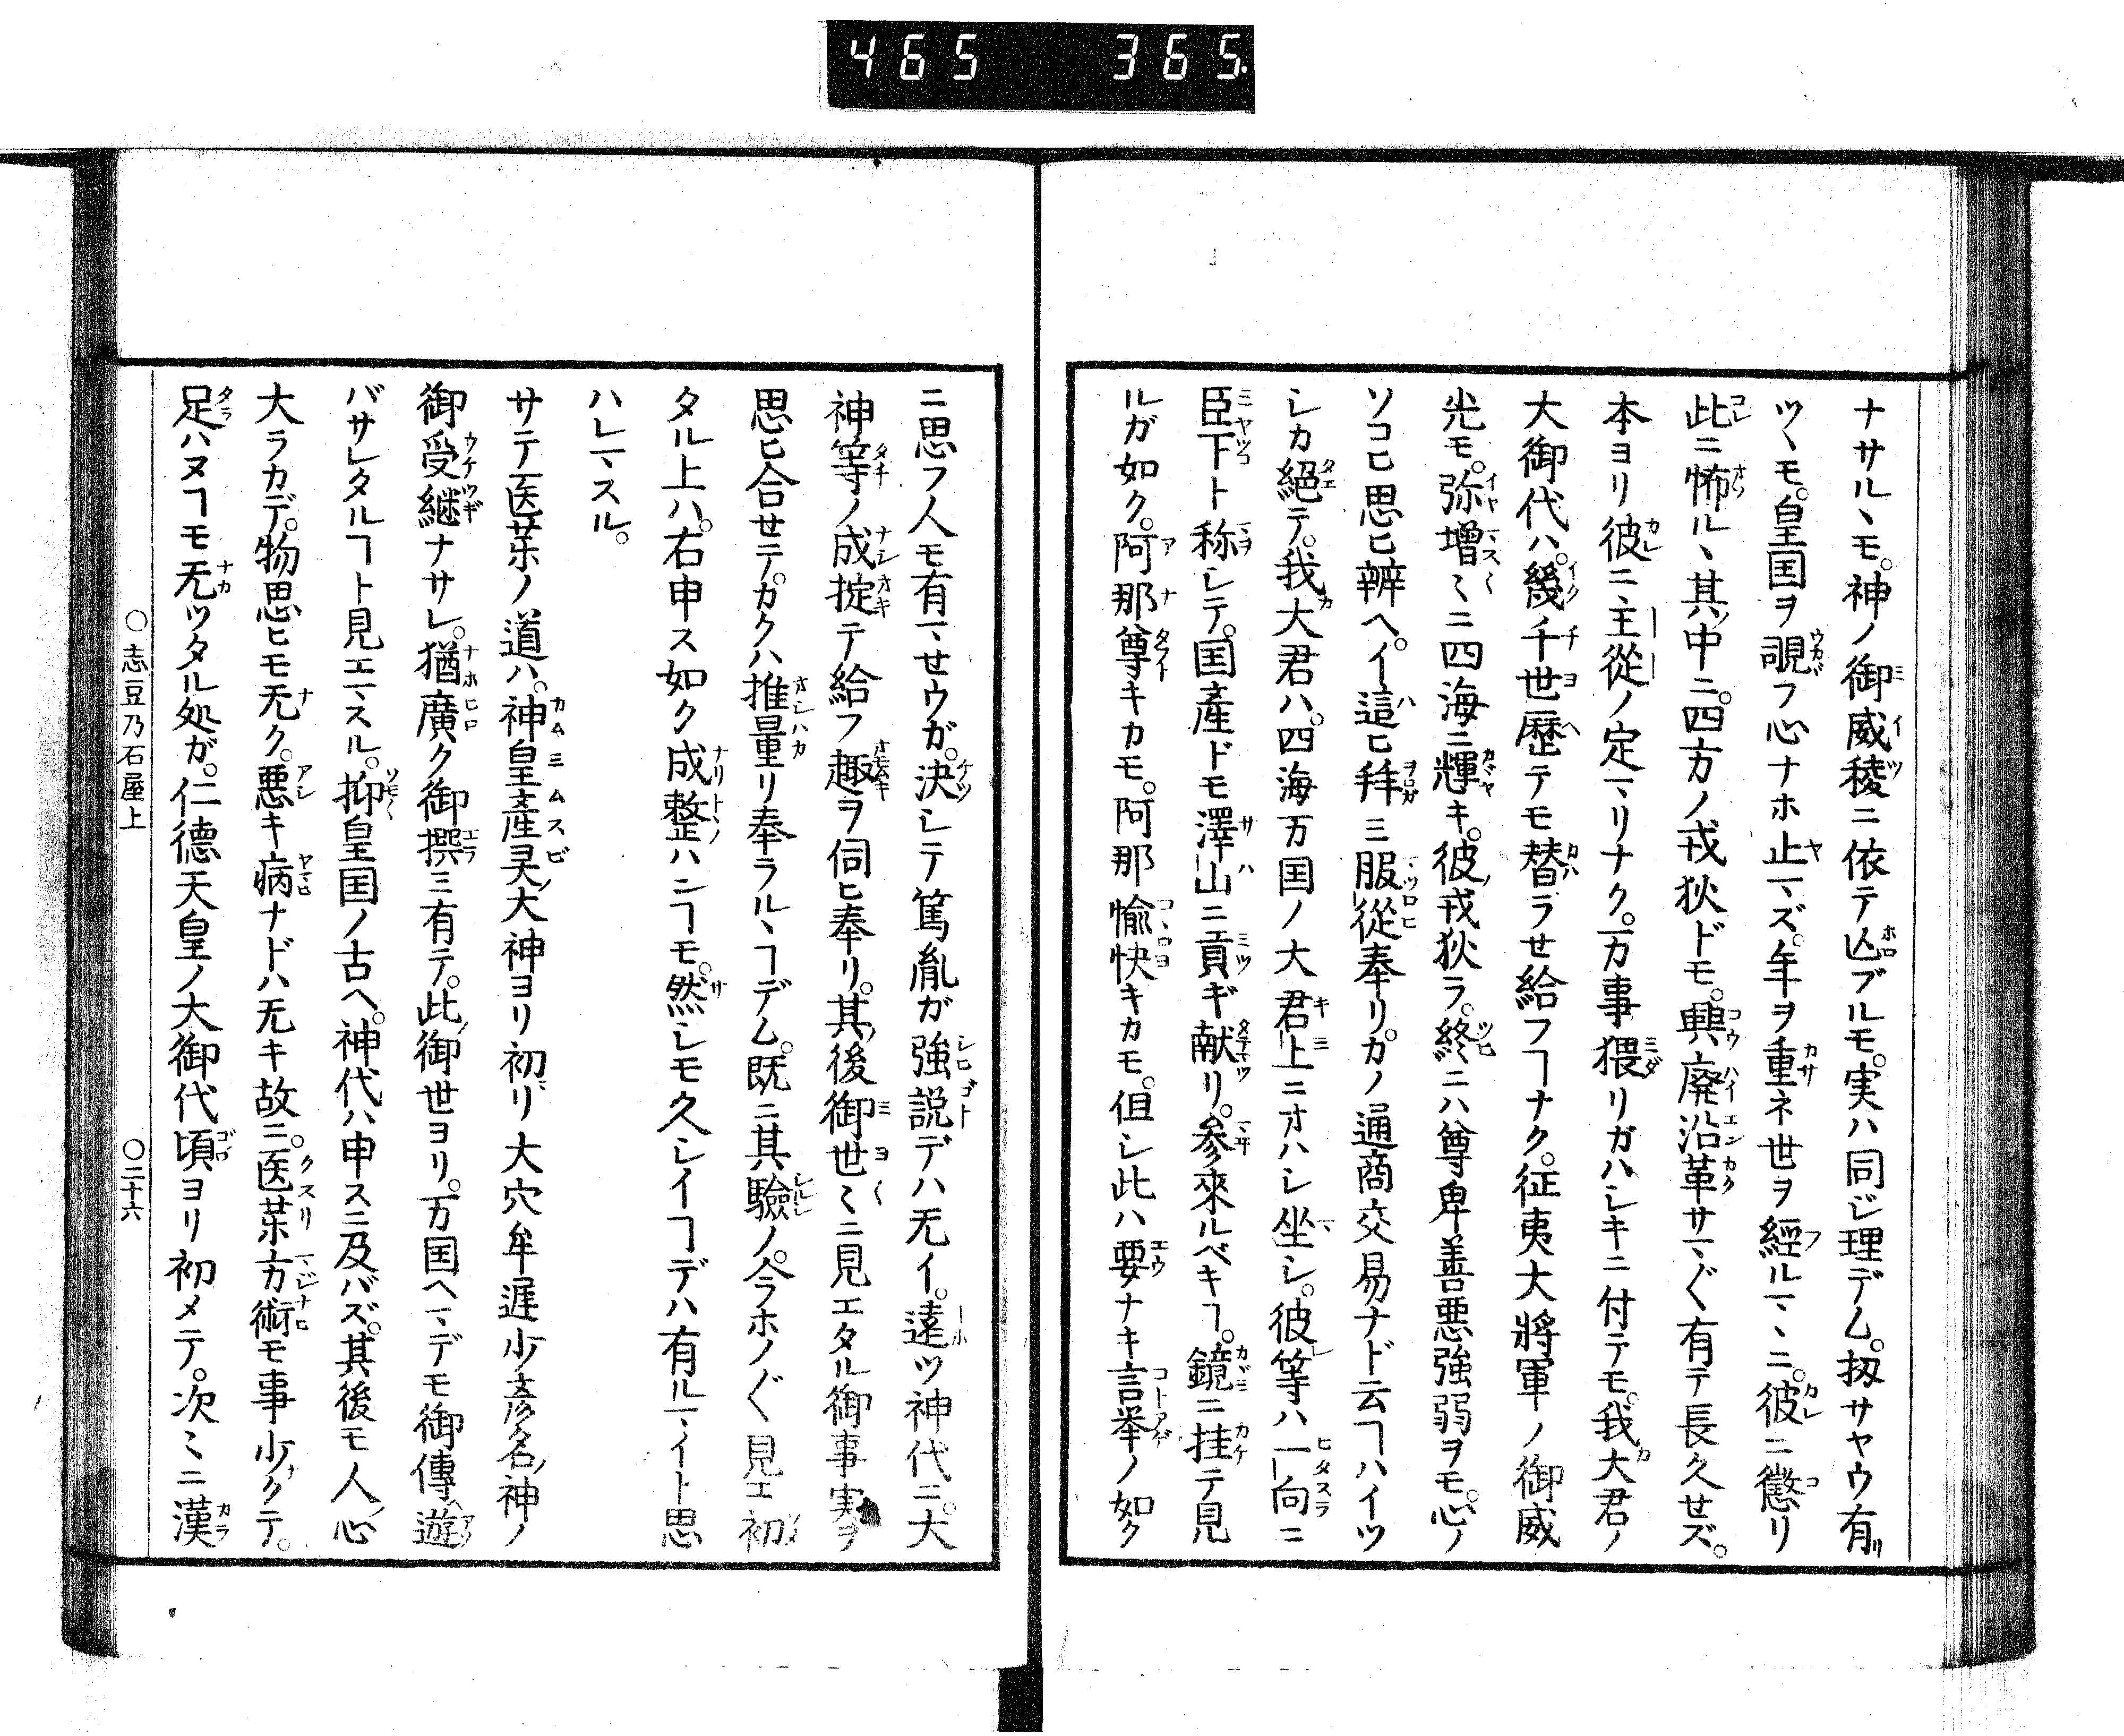 465 365
ナサルヽモ。神ノ御威稜ニ依テ亾ブルモ。実ハ同ジ理デム。扨サヤウ有リ
ツヽモ。皇国ヲ覗フ心ナホ止マズ。年ヲ重ネ世ヲ經ルマヽニ。彼ニ懲リ
此ニ怖ルヽ其中ニ。四方ノ戎狄ドモ。興廃沿革サマ〴〵有テ長久セズ。
本ヨリ彼ニ主從ノ定マリナク。万事猥リガハシキニ付テモ。我大君ノ
大御代ハ。幾千世歷テモ替ラせ給フヿナク。征夷大將軍ノ御威
光モ。弥増〻ニ四海ニ輝キ。彼戎狄ラ。終ニハ尊卑善悪強弱ヲモ。心ノ
ソコヒ思ヒ辨ヘ。イ這ヒ拜ミ服從奉リ。カノ通商交易ナド云ヿハイツ
シカ絕テ。我大君ハ。四海万国ノ大君上ニオハシ坐シ。彼等ハ一向ニ
臣下ト称シテ。国産ドモ澤山ニ貢ギ献リ。参來ルベキヿ。鏡ニ挂テ見
ルガ如ク。阿那尊キカモ。阿那愉快キカモ。但シ此ハ要ナキ言举ノ如ク
ニ思フ人モ有マせウガ。決シテ篤胤ガ強説デハ无イ。遠ツ神代ニ。大
神等ノ成掟テ給フ趣ヲ伺ヒ奉リ。其後御世〻ニ見エタル御事実ヲ
思ヒ合せテ。カクハ推量リ奉ラルヽヿデム。既ニ其驗ノ。今ラホノ〴〵見エ初
タル上ハ。右申ス如ク成整ハンヿモ。然シモ久シイヿデハ有ルマイト思
ハレマスル。
サテ医藥ノ道ハ。神皇産灵大神ヨリ初リ大穴牟遅少彦名神ノ
御受継ナサレ。猶廣ク御撰ミ有テ。此御世ヨリ。万国ヘマデモ御傳遊
バサレタルヿト見エマスル。抑皇国ノ古ヘ。神代ハ申スニ及バズ。其後モ人心
大ラカデ。物思ヒモ无ク。悪キ病ナドハ无キ故ニ。医藥方術モ事少クテ。
足ハヌヿモ无ツタル処ガ。仁德天皇ノ大御代頃ヨリ初メテ。次〻ニ漢
○志豆乃石屋上 ○二十六